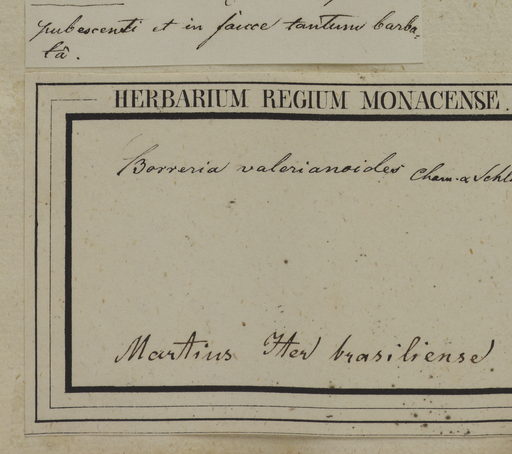 pubescenti et in fauce tantum barba=
tâ.
HERBARIUM REGIUM MONACENSE.
Borreria valerianoides Cham. & Schl
Martius Iter brasiliense